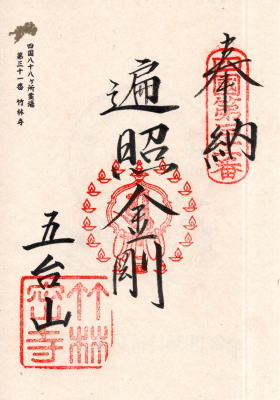 奉納
四國第三十一番
遍照金剛
五台山
竹林
密寺
四国八十八ヶ所霊場
第三十一番 竹林寺